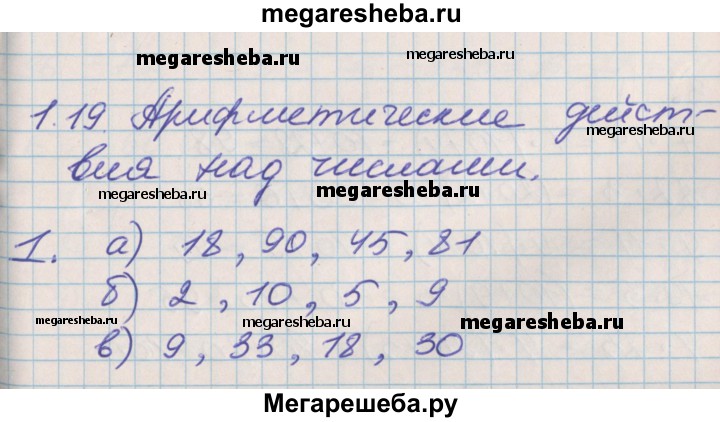 megaresheba.ru
megaresheba.ru megaresheba.ru
1.19. Арифметические дейст-
megaresheba.ru
вия над числами.
megaresheba.ru megaresheba.ru
1. а) 18, 90, 45, 81
б) 2, 10, 5, 9
megaresheba.ru megaresheba.ru megaresheba.ru
в) 9, 33, 18, 30
Мегарешеба.ру